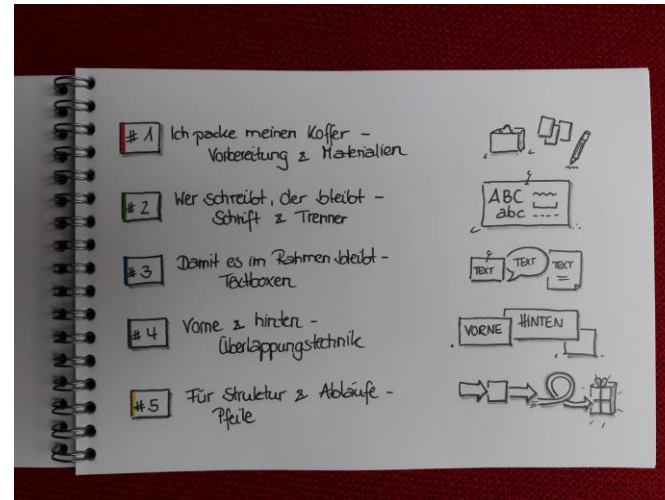 #1 Ich packe meinen Koffer –
Vorbereitung & Materialien
#2 Wer schreibt, der bleibt –
Schrift & Trenner
ABC
abc
#3 Damit es im Rahmen bleibt –
Textboxen
TEXT TEXT TEXT
#4 Vorne & hinten –
Überlappungstechnik
VORNE HINTEN
#5 Für Struktur & Abläufe –
Pfeile